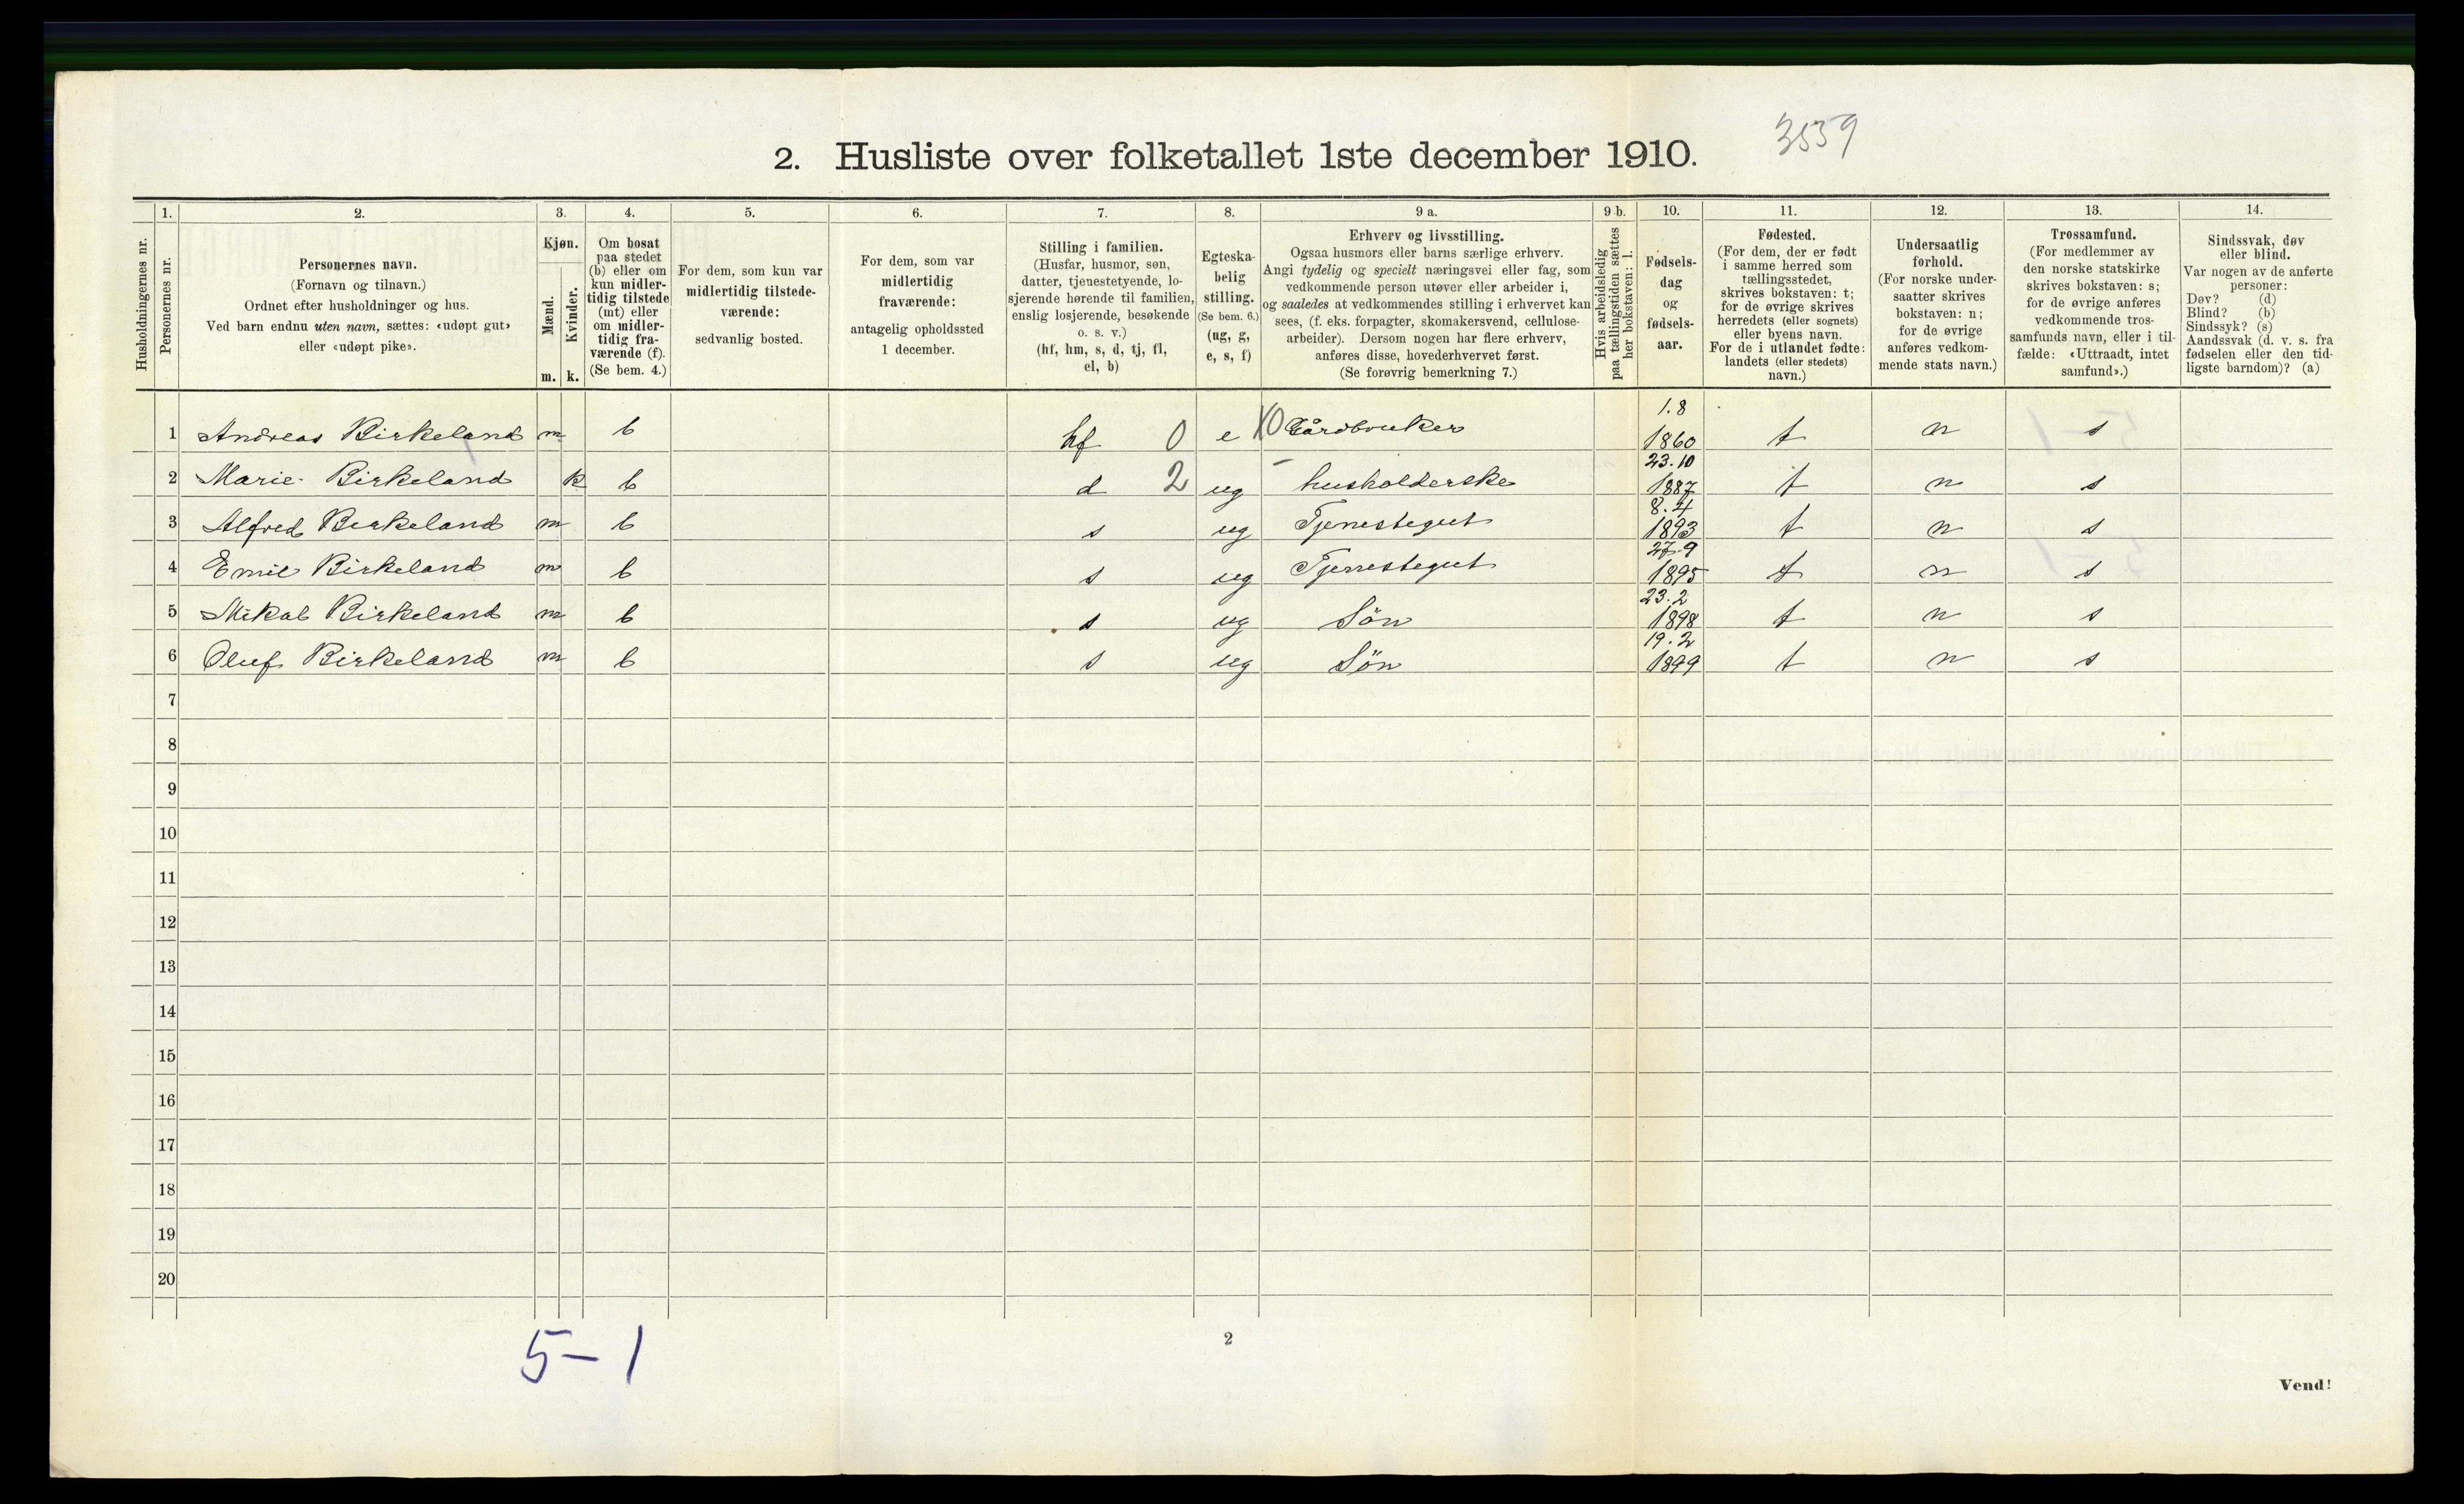 3559
2. Husliste over folketallet 1ste december 1910.
1. 2. 3. 4. 5. 6. 7. 8. 9 a. 9 b. 10. 11. 12. 13. 14.
Husholdningernes nr.
Personernes nr.
Personernes navn.
(Fornavn og tilnavn.)
Ordnet efter husholdninger og hus.
Ved barn endnu uten navn, sættes: «udøpt gut»
eller «udøpt pike».
Kjøn.
Mænd.
Kvinder.
m. k.
Om bosat
paa stedet
(b) eller om
kun midler-
tidig tilstede
(mt) eller
om midler-
tidig fra-
værende (f).
(Se bem. 4.)
For dem, som kun var
midlertidig tilstede-
værende:
sedvanlig bosted.
For dem, som var
midlertidig
fraværende:
antagelig opholdssted
1 december.
Stilling i familien.
(Husfar, husmor, søn,
datter, tjenestetyende, lo-
sjerende hørende til familien,
enslig losjerende, besøkende
o. s. v.)
(hf, hm, s, d, tj, fl,
el, b)
Egteska-
belig
stilling.
(Se bem. 6.)
(ug, g,
e, s, f)
Erhverv og livsstilling.
Ogsaa husmors eller barns særlige erhverv.
Angi tydelig og specielt næringsvei eller fag, som
vedkommende person utøver eller arbeider i,
og saaledes at vedkommendes stilling i erhvervet kan
sees, (f. eks. forpagter, skomakersvend, cellulose-
arbeider). Dersom nogen har flere erhverv,
anføres disse, hovederhvervet først.
(Se forøvrig bemerkning 7.)
Hvis arbeidsledig
paa tællingstiden sættes
her bokstaven: l.
Fødsels-
dag
og
fødsels-
aar.
Fødested.
(For dem, der er født
i samme herred som
tællingsstedet,
skrives bokstaven: t;
for de øvrige skrives
herredets (eller sognets)
eller byens navn.
For de i utlandet fødte:
landets (eller stedets)
navn.)
Undersaatlig
forhold.
(For norske under-
saatter skrives
bokstaven: n;
for de øvrige
anføres vedkom-
mende stats navn.)
Trossamfund.
(For medlemmer av
den norske statskirke
skrives bokstaven: s;
for de øvrige anføres
vedkommende tros-
samfunds navn, eller i til-
fælde: «Uttraadt, intet
samfund».)
Sindssvak, døv
eller blind.
Var nogen av de anførte
personer:
Døv? (d)
Blind? (b)
Sindssyk? (s)
Aandssvak (d. v. s. fra
fødselen eller den tid-
ligste barndom)? (a)
1 Andreas Birkeland m b hf 0 e Gårdbruker 1.8 1860 t n s
2 Marie Birkeland k b d 2 ug husholderske 23.10 1887 t n s
3 Alfred Birkeland m b s ug Tjenestegut 8.4 1893 t n s
4 Emil Birkeland m b s ug Tjenestegut 27.9 1895 t n s
5 Mikal Birkeland m b s ug Søn 23.2 1898 t n s
6 Oluf Birkeland m b s ug Søn 19.2 1899 t n s
7
8
9
10
11
12
13
14
15
16
17
18
19
20
5-1
2
Vend!